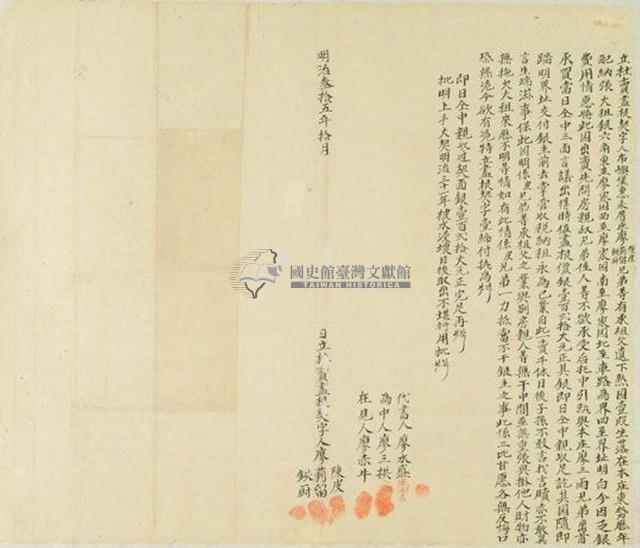 立杜賣盡根契字人布嶼堡惠來厝庄廖陳皮莿留鍬厨兄弟等有承祖父遺下熟園壹段坐落在本庄東勢歷年
配納張大租銀六角東至廖家園西至廖家園南至廖家園北至車路為界四至界址明白今因乏銀
費用情愿將此園出賣先問房親叔兄弟侄人等不欲承受后托中引就與本庄廖三兩兄弟出首
承買當日仝中三面言議出得時值盡根價銀壹百式拾大元正其銀即日仝中親收足訖其園隨即
踏明界址交付銀主前去掌管收稅納租永為己業自此一賣千休日後子孫不敢言找言贖亦不敢異
言生端滋事保此園明係兄弟等承祖父之業與別房親人等無干中間並無重張典掛他人財物亦
無拖欠大租來歷不明等情如有此情係兄弟一力抵當不干銀主之事此係二比甘愿各無反悔口
恐無憑今欲有憑特立盡根契字壹紙付執為炤
即日仝中親收過契面銀壹百式拾大元正完足再炤
批明上手大契明治三十一年被水浸壞日後取出不堪行用批炤
代書人廖水
為中人廖三拱
在見人廖赤牛
明治叁拾五年拾月 日立杜賣盡根契字人廖
陳皮
莿留
鍬厨
國史館臺灣文獻館
TAIWAN HISTORICA